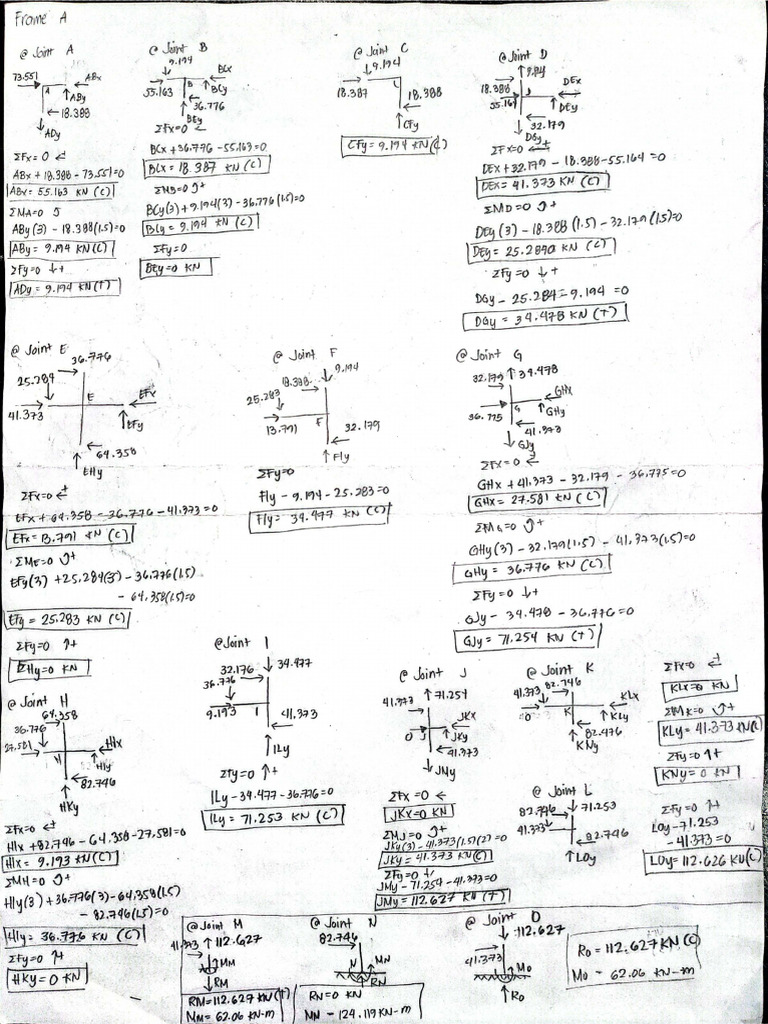 Frame A
@ Joint A
73.551
ABx
A
ABy
18.388
ADy
ΣFx = 0
ABx + 18.388 - 73.551=0
ABx = 55.163 KN (C)
ΣMA=0
ABy (3) - 18.388(1.5)=0
ABy = 9.194 KN(C)
ΣFy=0 ↓+
ADy = 9.194 KN(T)
@ Joint B
9.194
BCx
B
BCy
55.163
36.776
BEy
ΣFx=0 ←
BCx + 36.776 - 55.163=0
BCx = 18.387 KN (C)
ΣMB=0
BCy(3) + 9.194(3) - 36.776(1.5)=0
BCy = 9.194 KN (C)
ΣFy=0
BEy=0 KN
@ Joint C
9.194
C
18.387
18.388
CFy
CFy = 9.194 KN(C)
@ Joint D
18.388
DEx
55.164
DEy
32.179
DGy
ΣFx=0
DEx + 32.179 - 18.388-55.164 =0
DEx = 41.373 KN (C)
ΣMD=0
DEy (3) - 18.388 (1.5) - 32.179(1.5)=0
DEy = 25.2840 KN (C)
ΣFy=0 ↓+
DGy - 25.284 - 9.194 =0
DGy = 34.478 KN (T)
@ Joint E
36.776
25.284
E
EFx
41.373
EFy
64.358
EHy
ΣFx=0
EFx + 64.358 - 36.776 - 41.373 =0
EFx = 13.791 KN (C)
ΣME=0
EFy(3) + 25.284(3) - 36.776(1.5)
- 64.358(1.5)=0
EFy = 25.283 KN (C)
ΣFy=0 ↑+
EHy=0 KN
@ Joint F
9.194
18.388
25.283
F
13.791
32.179
FIy
ΣFy=0
FIy - 9.194 - 25.283 =0
FIy = 34.477 KN (C)
@ Joint G
32.179
34.478
GHx
G
GHy
36.775
41.373
GJy
ΣFx=0
GHx + 41.373 - 32.179 - 36.775=0
GHx = 27.581 KN (C)
ΣMG=0
GHy(3) - 32.179(1.5) - 41.373(1.5)=0
GHy = 36.776 KN (C)
ΣFy=0 ↓+
GJy - 34.478 - 36.776 =0
GJy = 71.254 KN (T)
@ Joint H
64.358
36.776
27.581
H
HIx
HIy
82.746
HKy
ΣFx=0
HIx + 82.746 - 64.358 - 27.581=0
HIx = 9.193 KN (C)
ΣMH=0
HIy(3) + 36.776(3) - 64.358(1.5)
- 82.746(1.5)=0
HIy = 36.776 KN (C)
ΣFy=0
HKy=0 KN
@ Joint I
34.477
32.176
36.776
9.193
I
41.373
ILy
ΣFy=0 ↑+
ILy - 34.477 - 36.776=0
ILy = 71.253 KN (C)
@ Joint J
71.254
41.373
JKx
0
J
JKy
41.373
JMy
ΣFx=0 ←
JKx=0 KN
ΣMJ=0
JKy(3) - 41.373(1.5)(2) =0
JKy = 41.373 KN(C)
ΣFy=0
JMy - 71.254 - 41.373=0
JMy = 112.627 KN (T)
@ Joint K
82.746
41.373
KLx
0
K
KLy
82.476
KNy
ΣFx=0
KLx=0 KN
ΣMK=0
KLy = 41.373 KN(C)
ΣFy=0 ↑+
KNy = 0 KN
@ Joint L
82.746
71.253
41.373
82.746
LOy
ΣFy=0
LOy - 71.253
- 41.373 =0
LOy = 112.626 KN(C)
@ Joint M
41.373
112.627
MM
RM
RM=112.627 KN (T)
MM= 62.06 KN-m
@ Joint N
82.746
N
MN
RN
RN=0 KN
MN = 124.119 KN-m
@ Joint O
112.627
41.373
MO
RO
RO = 112.627 KN (C)
MO = 62.06 KN-m